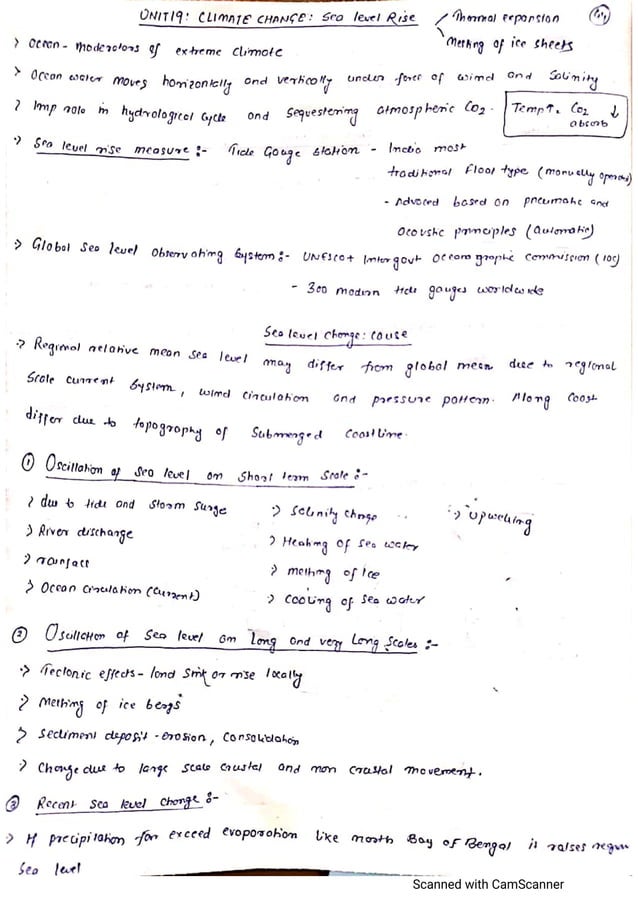 UNIT19: CLIMATE CHANGE: Sea level Rise
Thermal expansion
Melting of ice sheets
> Ocean - moderators of extreme climate
> Ocean water moves horizontally and vertically under force of wind and Salinity
> Imp role in hydrological cycle and sequestering atmospheric CO2.
Temp↑, CO2 ↓
absorb
> Sea level rise measure :- Tide Gauge Station - India most
traditional Float type (manually operated)
- Advced based on pneumatic and
acoustic principles (automatic)
> Global Sea level Observating System:- UNESCO+ Intergovt Oceanographic Commission (IOC)
- 300 modern tide gauges worldwide
Sea level Change: cause
> Regional relative mean sea level may differ from global mean due to regional
scale current system, wind circulation and pressure pattern. Along Coast
differ due to topography of submerged coastline.
① Oscillation of sea level on short term scale :-
> due to tide and storm surge
> River discharge
> rainfall
> Ocean circulation (current)
> Salinity change
> Heating of sea water
> melting of ice
> cooling of sea water
> Upwelling
② Oscillation of sea level on long and very Long Scales :-
> Tectonic effects - land sink or rise locally
> Melting of ice bergs
> Sediment deposit - erosion, consolidation
> Change due to large scale crustal and non crustal movement.
③ Recent sea level change :-
> If precipitation far exceed evaporation like north Bay of Bengal it raises
sea level
Scanned with CamScanner